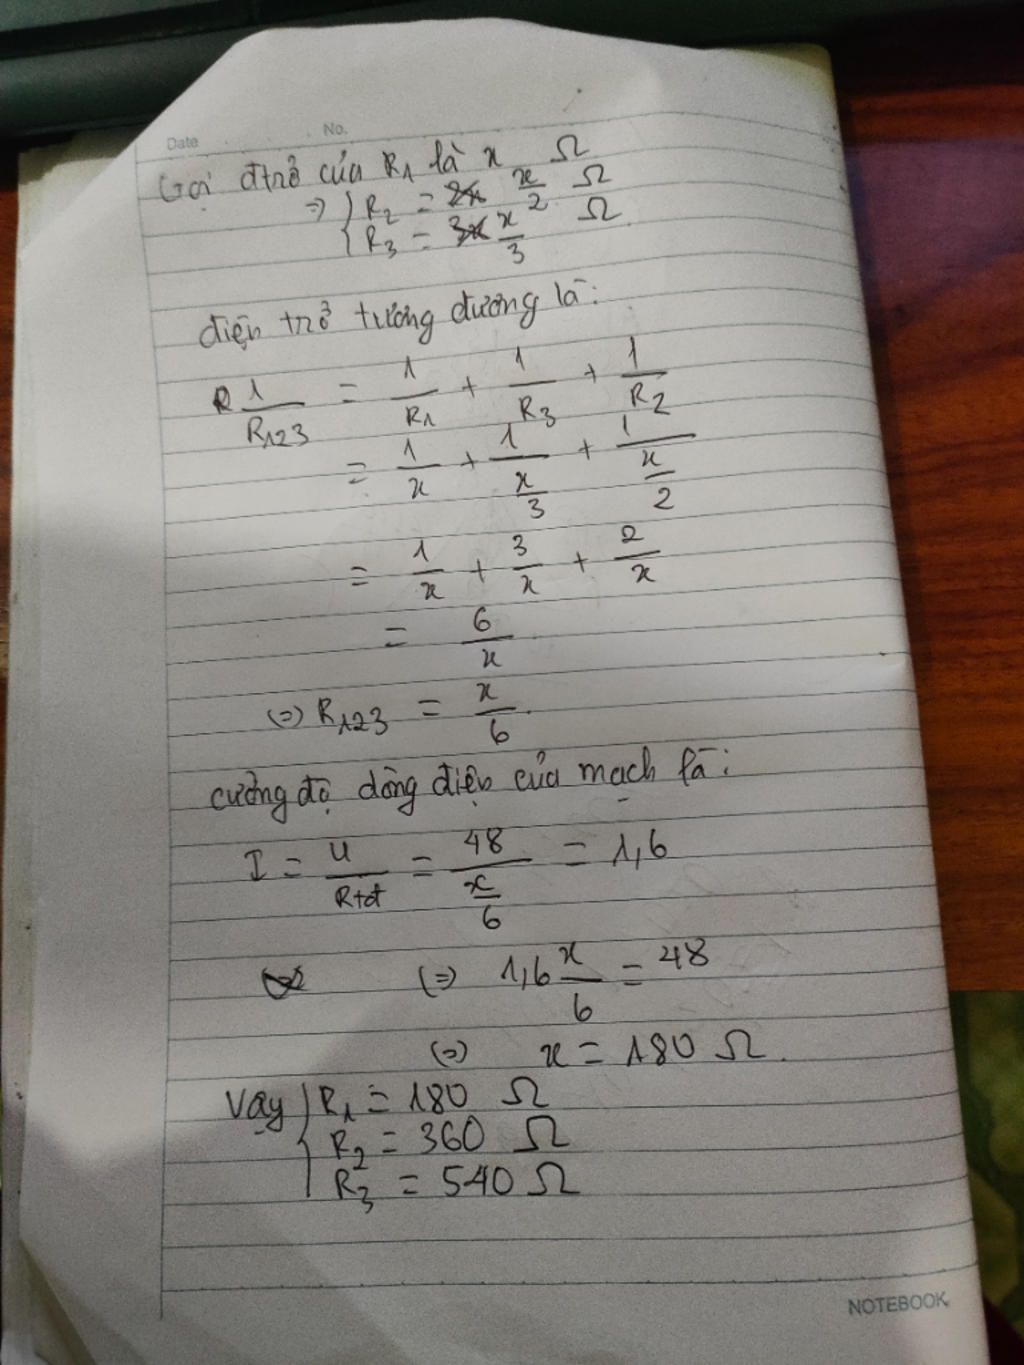 Date No.
Gọi đtrở của R1 là x Ω
=> { R2 = 2x x/2 Ω
R3 = 3x x/3 Ω
điện trở tương đương là:
R 1/R123 = 1/R1 + 1/R3 + 1/R2
= 1/x + 1/(x/3) + 1/(x/2)
= 1/x + 3/x + 2/x
= 6/x
(=) R123 = x/6.
cường độ dòng điện của mạch là:
I = U/Rtđ = 48/(x/6) = 1,6
(=) 1,6 x/6 = 48
(=) x = 180 Ω.
Vậy { R1 = 180 Ω
R2 = 360 Ω
R3 = 540 Ω
NOTEBOOK